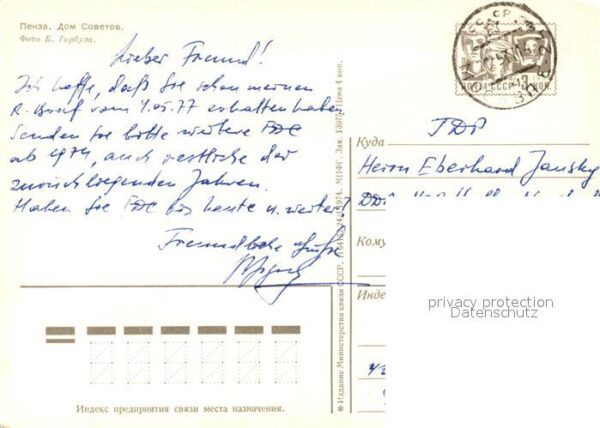 Пенза. Дом Советов.
Фото Б. Гарбуза.
Lieber Freund!
Ich hoffe, daß Sie schon meinen
R-Brief vom 4.05.77 erhalten haben
Senden Sie bitte weitere FDC
ab 1974, auch restliche der
zurückliegenden Jahren.
Haben Sie FDC bis heute u. weiter?
Freundliche Grüße
ПОЧТА СССР
Куда
Herrn Eberhard Jansky
Кому
Инде
privacy protection
Datenschutz
Индекс предприятия связи места назначения.
* Издание Министерства связи СССР. 1974. МПФГ. Зак. Цена 4 коп.